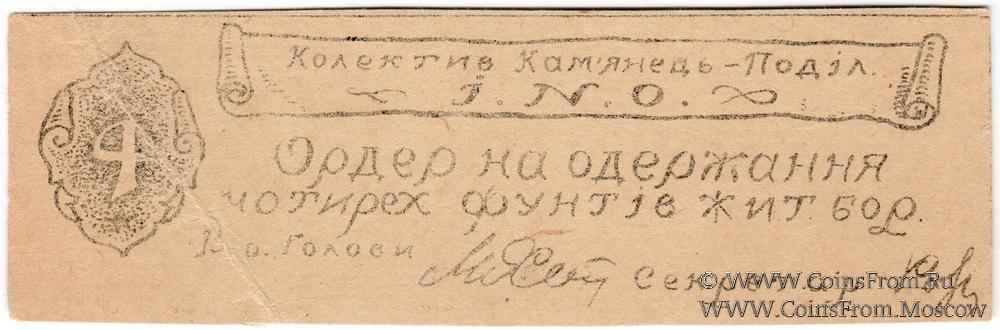 Колектив Кам'янець-Поділ.
І. N. О.
4
Ордер на одержання
чотирех фунтів жит. бор.
В. о. Голови
Секретар
© WWW.CoinsFrom.Ru
WWW.CoinsFrom.Moscow